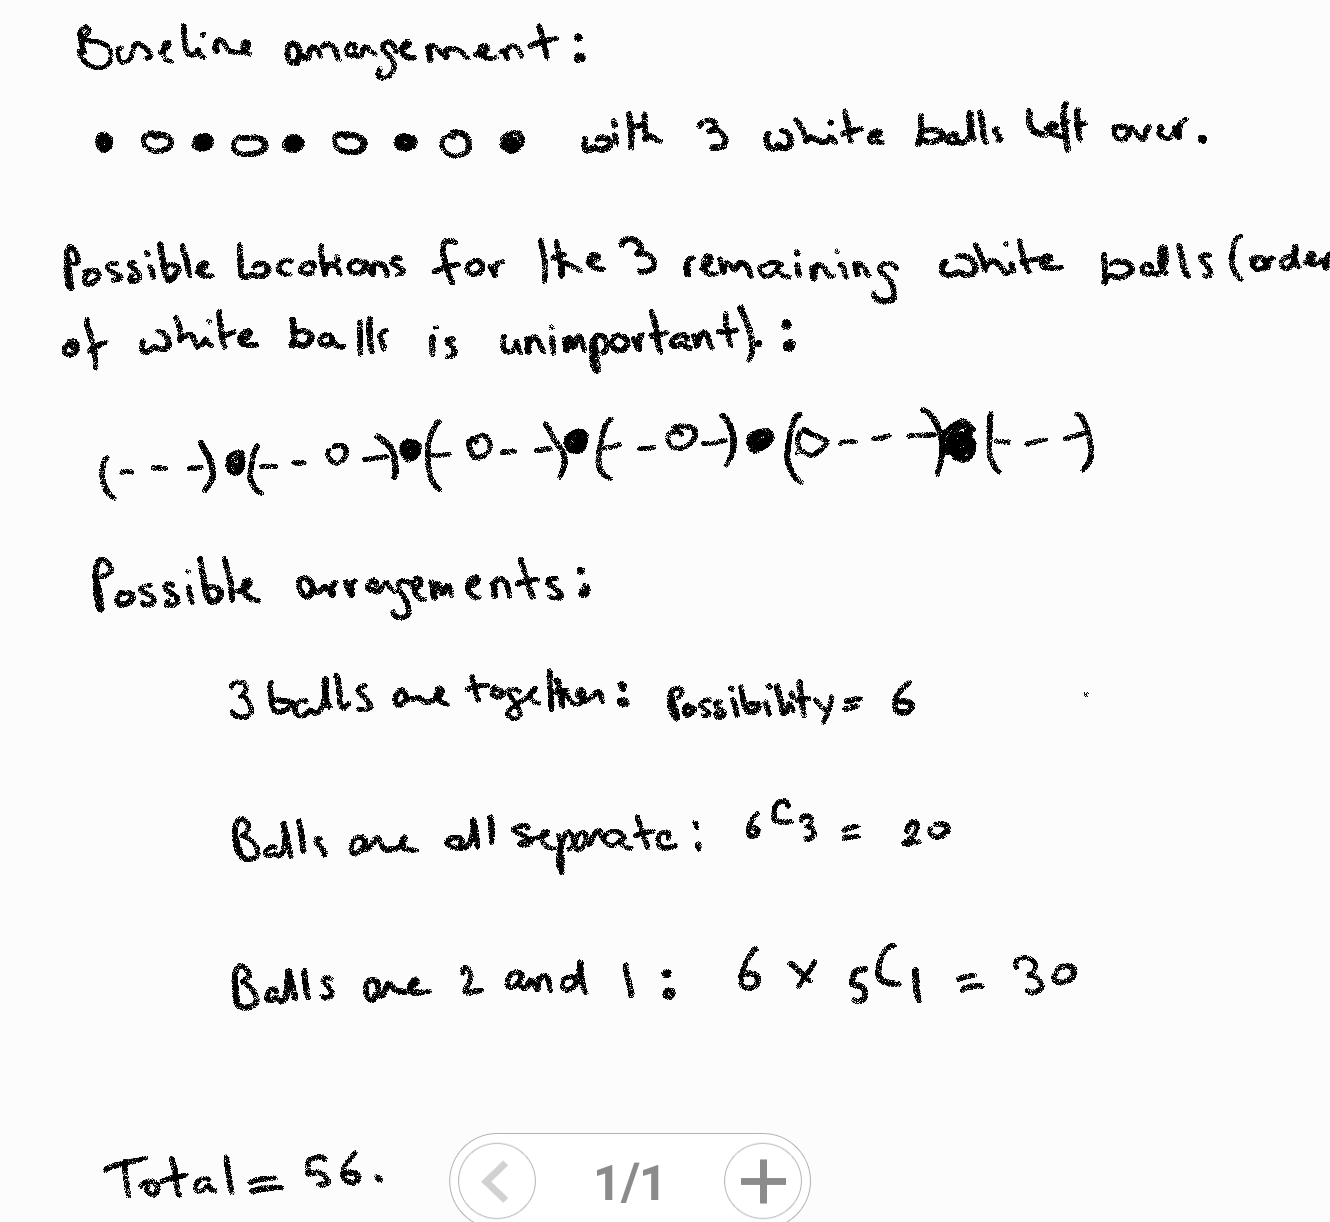 Baseline arrangement:
● ○ ● ○ ● ○ ● ○ ● with 3 white balls left over.
Possible locations for the 3 remaining white balls (order
of white balls is unimportant):
(---)●(--○-)●(-○--)●(--○-)●(○---)●(---)
Possible arrangements:
3 balls are together: Possibility = 6
Balls are all separate: 6C3 = 20
Balls are 2 and 1: 6 × 5C1 = 30
Total = 56.
1/1